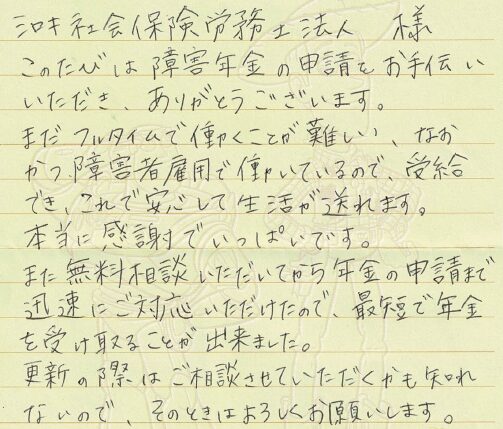 シロキ社会保険労務士法人　様
このたびは障害年金の申請をお手伝い
いただき、ありがとうございます。
まだフルタイムで働くことが難しい、なお
かつ障害者雇用で働いているので、受給
でき、これで安心して生活が送れます。
本当に感謝でいっぱいです。
また無料相談いただいてから年金の申請まで
迅速にご対応いただけたので、最短で年金
を受け取ることが出来ました。
更新の際はご相談させていただくかも知れ
ないので、そのときはよろしくお願いします。